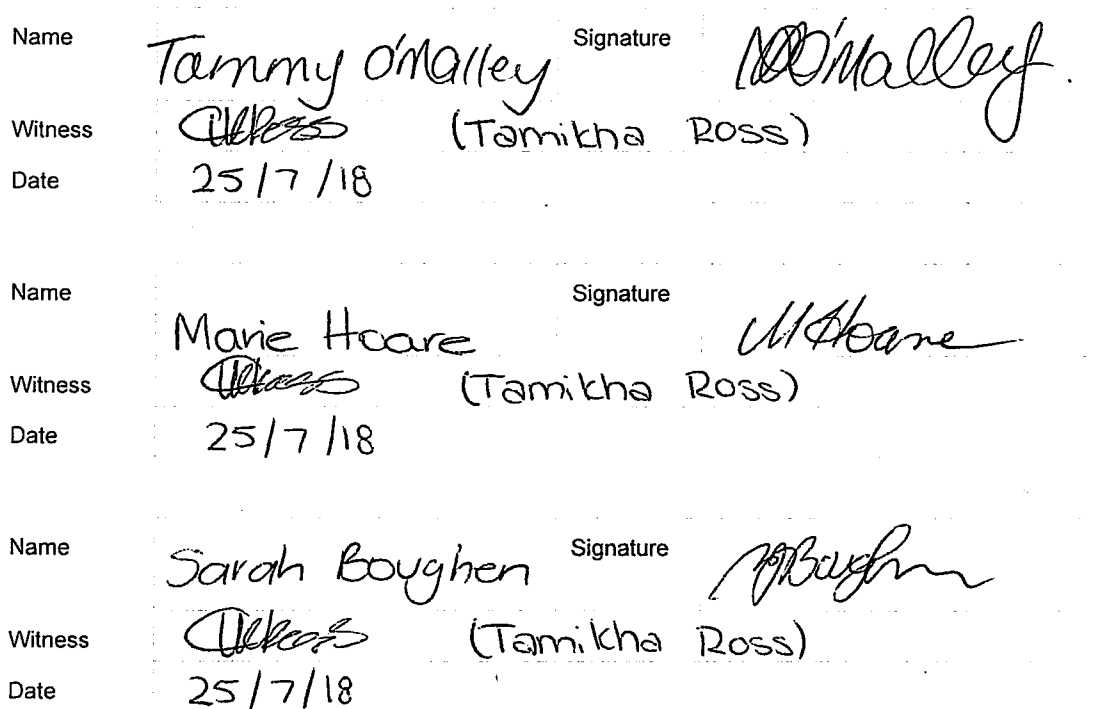 Name Tammy O'Malley Signature O'Malley.
Witness (Tamikha Ross)
Date 25/7/18
Name Marie Hoare Signature M Hoare
Witness (Tamikha Ross)
Date 25/7/18
Name Sarah Boughen Signature
Witness (Tamikha Ross)
Date 25/7/18